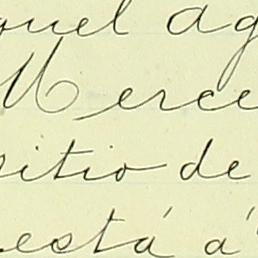 quel ag
Merce
sitio de
está á